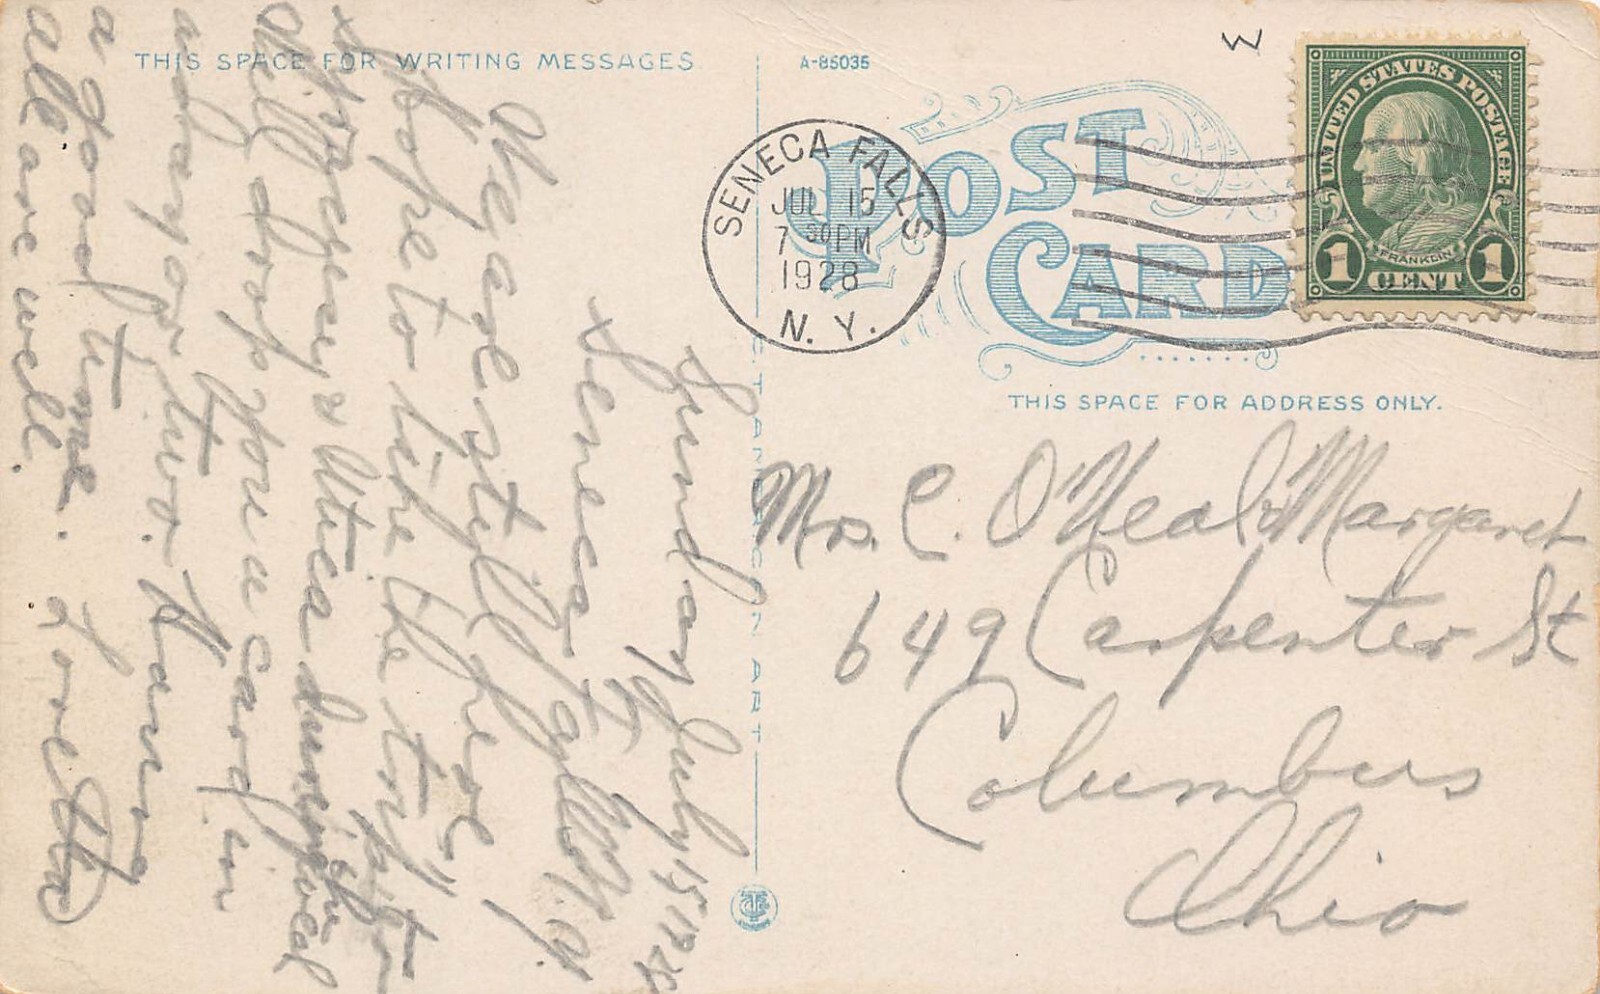 THIS SPACE FOR WRITING MESSAGES
A-85035
W
POST
CARD
SENECA FALLS
JUL 15
7 30PM
1928
N. Y.
UNITED STATES POSTAGE
FRANKLIN
1 CENT 1
THIS SPACE FOR ADDRESS ONLY.
Sunday July 15 1928
Seneca Falls N.Y.
We are still here
hope to take the trip to
Syracuse & Utica
Will drop you a card in
a day or two. Having
a good time. Love
all are well.
Mrs. C. O'Neal & Margaret
649 Carpenter St
Columbus
Ohio
C.T. AMERICAN ART